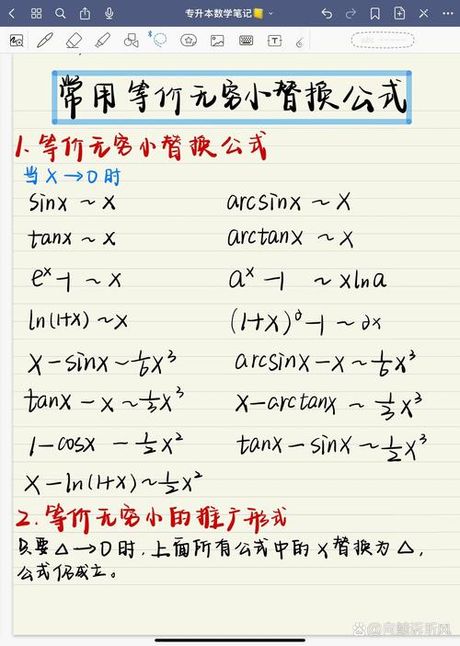 专升本数学笔记📒
常用等价无穷小替换公式
1. 等价无穷小替换公式
当 X→0 时
sinx ~ x    arcsinx ~ X
tanx ~ x    arctanx ~ X
eˣ-1 ~ x    aˣ-1 ~ xlna
ln(1+x) ~ x    (1+X)ᵃ-1 ~ ax
X-sinx ~ 1/6 x³    arcsinx-x ~ 1/6 x³
tanx-x ~ 1/3 x³    X-arctanx ~ 1/3 x³
1-cosx - 1/2 x²    tanx-sinx ~ 1/2 x³
X-ln(1+x) ~ 1/2 x²
2. 等价无穷小的推广形式
只要 △→0 时, 上面所有公式中的 X 替换为 △,
公式仍成立。